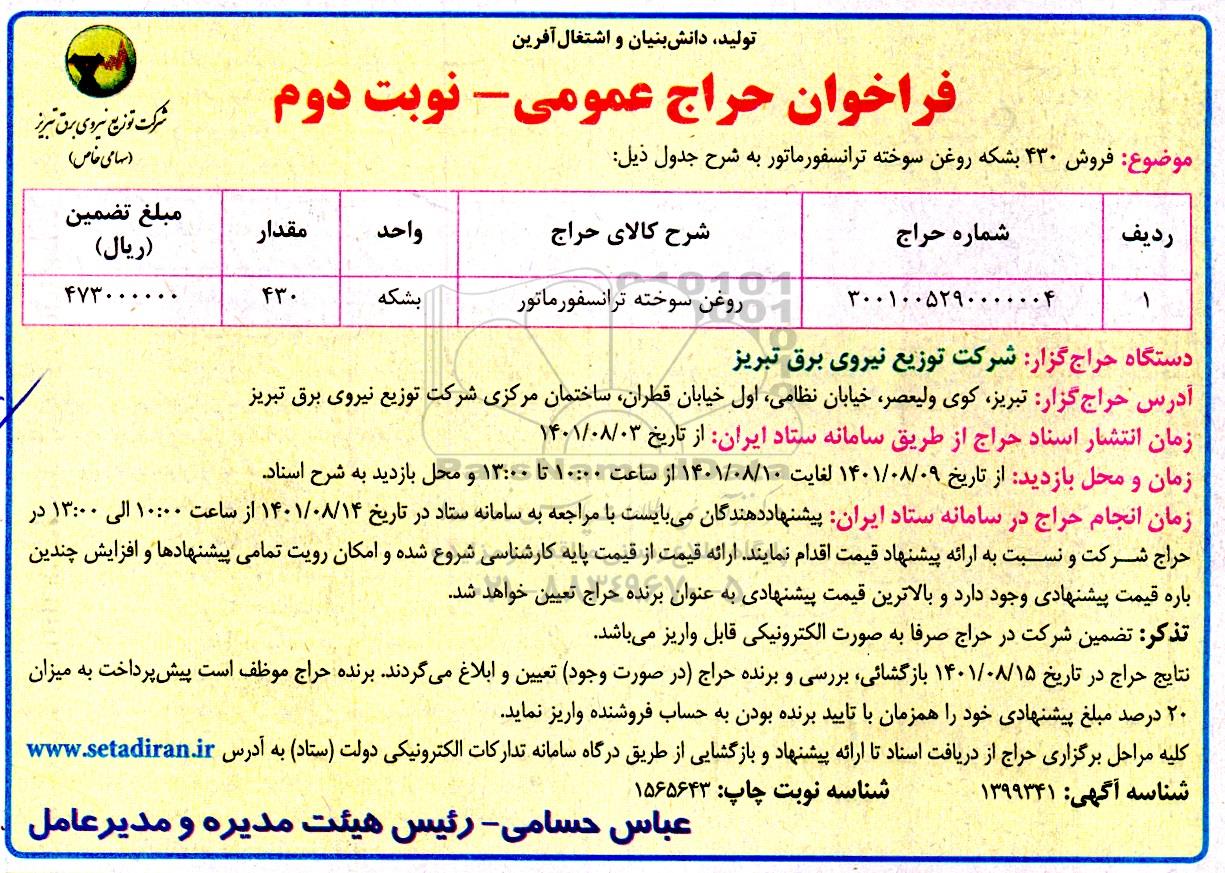 تولید، دانش‌بنیان و اشتغال‌آفرین
فراخوان حراج عمومی- نوبت دوم
شرکت توزیع نیروی برق تبریز
(سهامی خاص)
موضوع: فروش ۴۳۰ بشکه روغن سوخته ترانسفورماتور به شرح جدول ذیل:
ردیف شماره حراج شرح کالای حراج واحد مقدار مبلغ تضمین (ریال)
۱ ۳۰۰۱۰۰۵۲۹۰۰۰۰۰۰۴ روغن سوخته ترانسفورماتور بشکه ۴۳۰ ۴۷۳۰۰۰۰۰۰
دستگاه حراج‌گزار: شرکت توزیع نیروی برق تبریز
آدرس حراج‌گزار: تبریز، کوی ولیعصر، خیابان نظامی، اول خیابان قطران، ساختمان مرکزی شرکت توزیع نیروی برق تبریز
زمان انتشار اسناد حراج از طریق سامانه ستاد ایران: از تاریخ ۱۴۰۱/۰۸/۰۳
زمان و محل بازدید: از تاریخ ۱۴۰۱/۰۸/۰۹ لغایت ۱۴۰۱/۰۸/۱۰ از ساعت ۱۰:۰۰ تا ۱۳:۰۰ و محل بازدید به شرح اسناد.
زمان انجام حراج در سامانه ستاد ایران: پیشنهاددهندگان می‌بایست با مراجعه به سامانه ستاد در تاریخ ۱۴۰۱/۰۸/۱۴ از ساعت ۱۰:۰۰ الی ۱۳:۰۰ در
حراج شرکت و نسبت به ارائه پیشنهاد قیمت اقدام نمایند. ارائه قیمت از قیمت پایه کارشناسی شروع شده و امکان رویت تمامی پیشنهادها و افزایش چندین
باره قیمت پیشنهادی وجود دارد و بالاترین قیمت پیشنهادی به عنوان برنده حراج تعیین خواهد شد.
تذکر: تضمین شرکت در حراج صرفا به صورت الکترونیکی قابل واریز می‌باشد.
نتایج حراج در تاریخ ۱۴۰۱/۰۸/۱۵ بازگشائی، بررسی و برنده حراج (در صورت وجود) تعیین و ابلاغ می‌گردند. برنده حراج موظف است پیش‌پرداخت به میزان
۲۰ درصد مبلغ پیشنهادی خود را همزمان با تایید برنده بودن به حساب فروشنده واریز نماید.
کلیه مراحل برگزاری حراج از دریافت اسناد تا ارائه پیشنهاد و بازگشایی از طریق درگاه سامانه تدارکات الکترونیکی دولت (ستاد) به آدرس www.setadiran.ir
شناسه آگهی: ۱۳۹۹۳۴۱ شناسه نوبت چاپ: ۱۵۶۵۶۴۳
عباس حسامی- رئیس هیئت مدیره و مدیرعامل